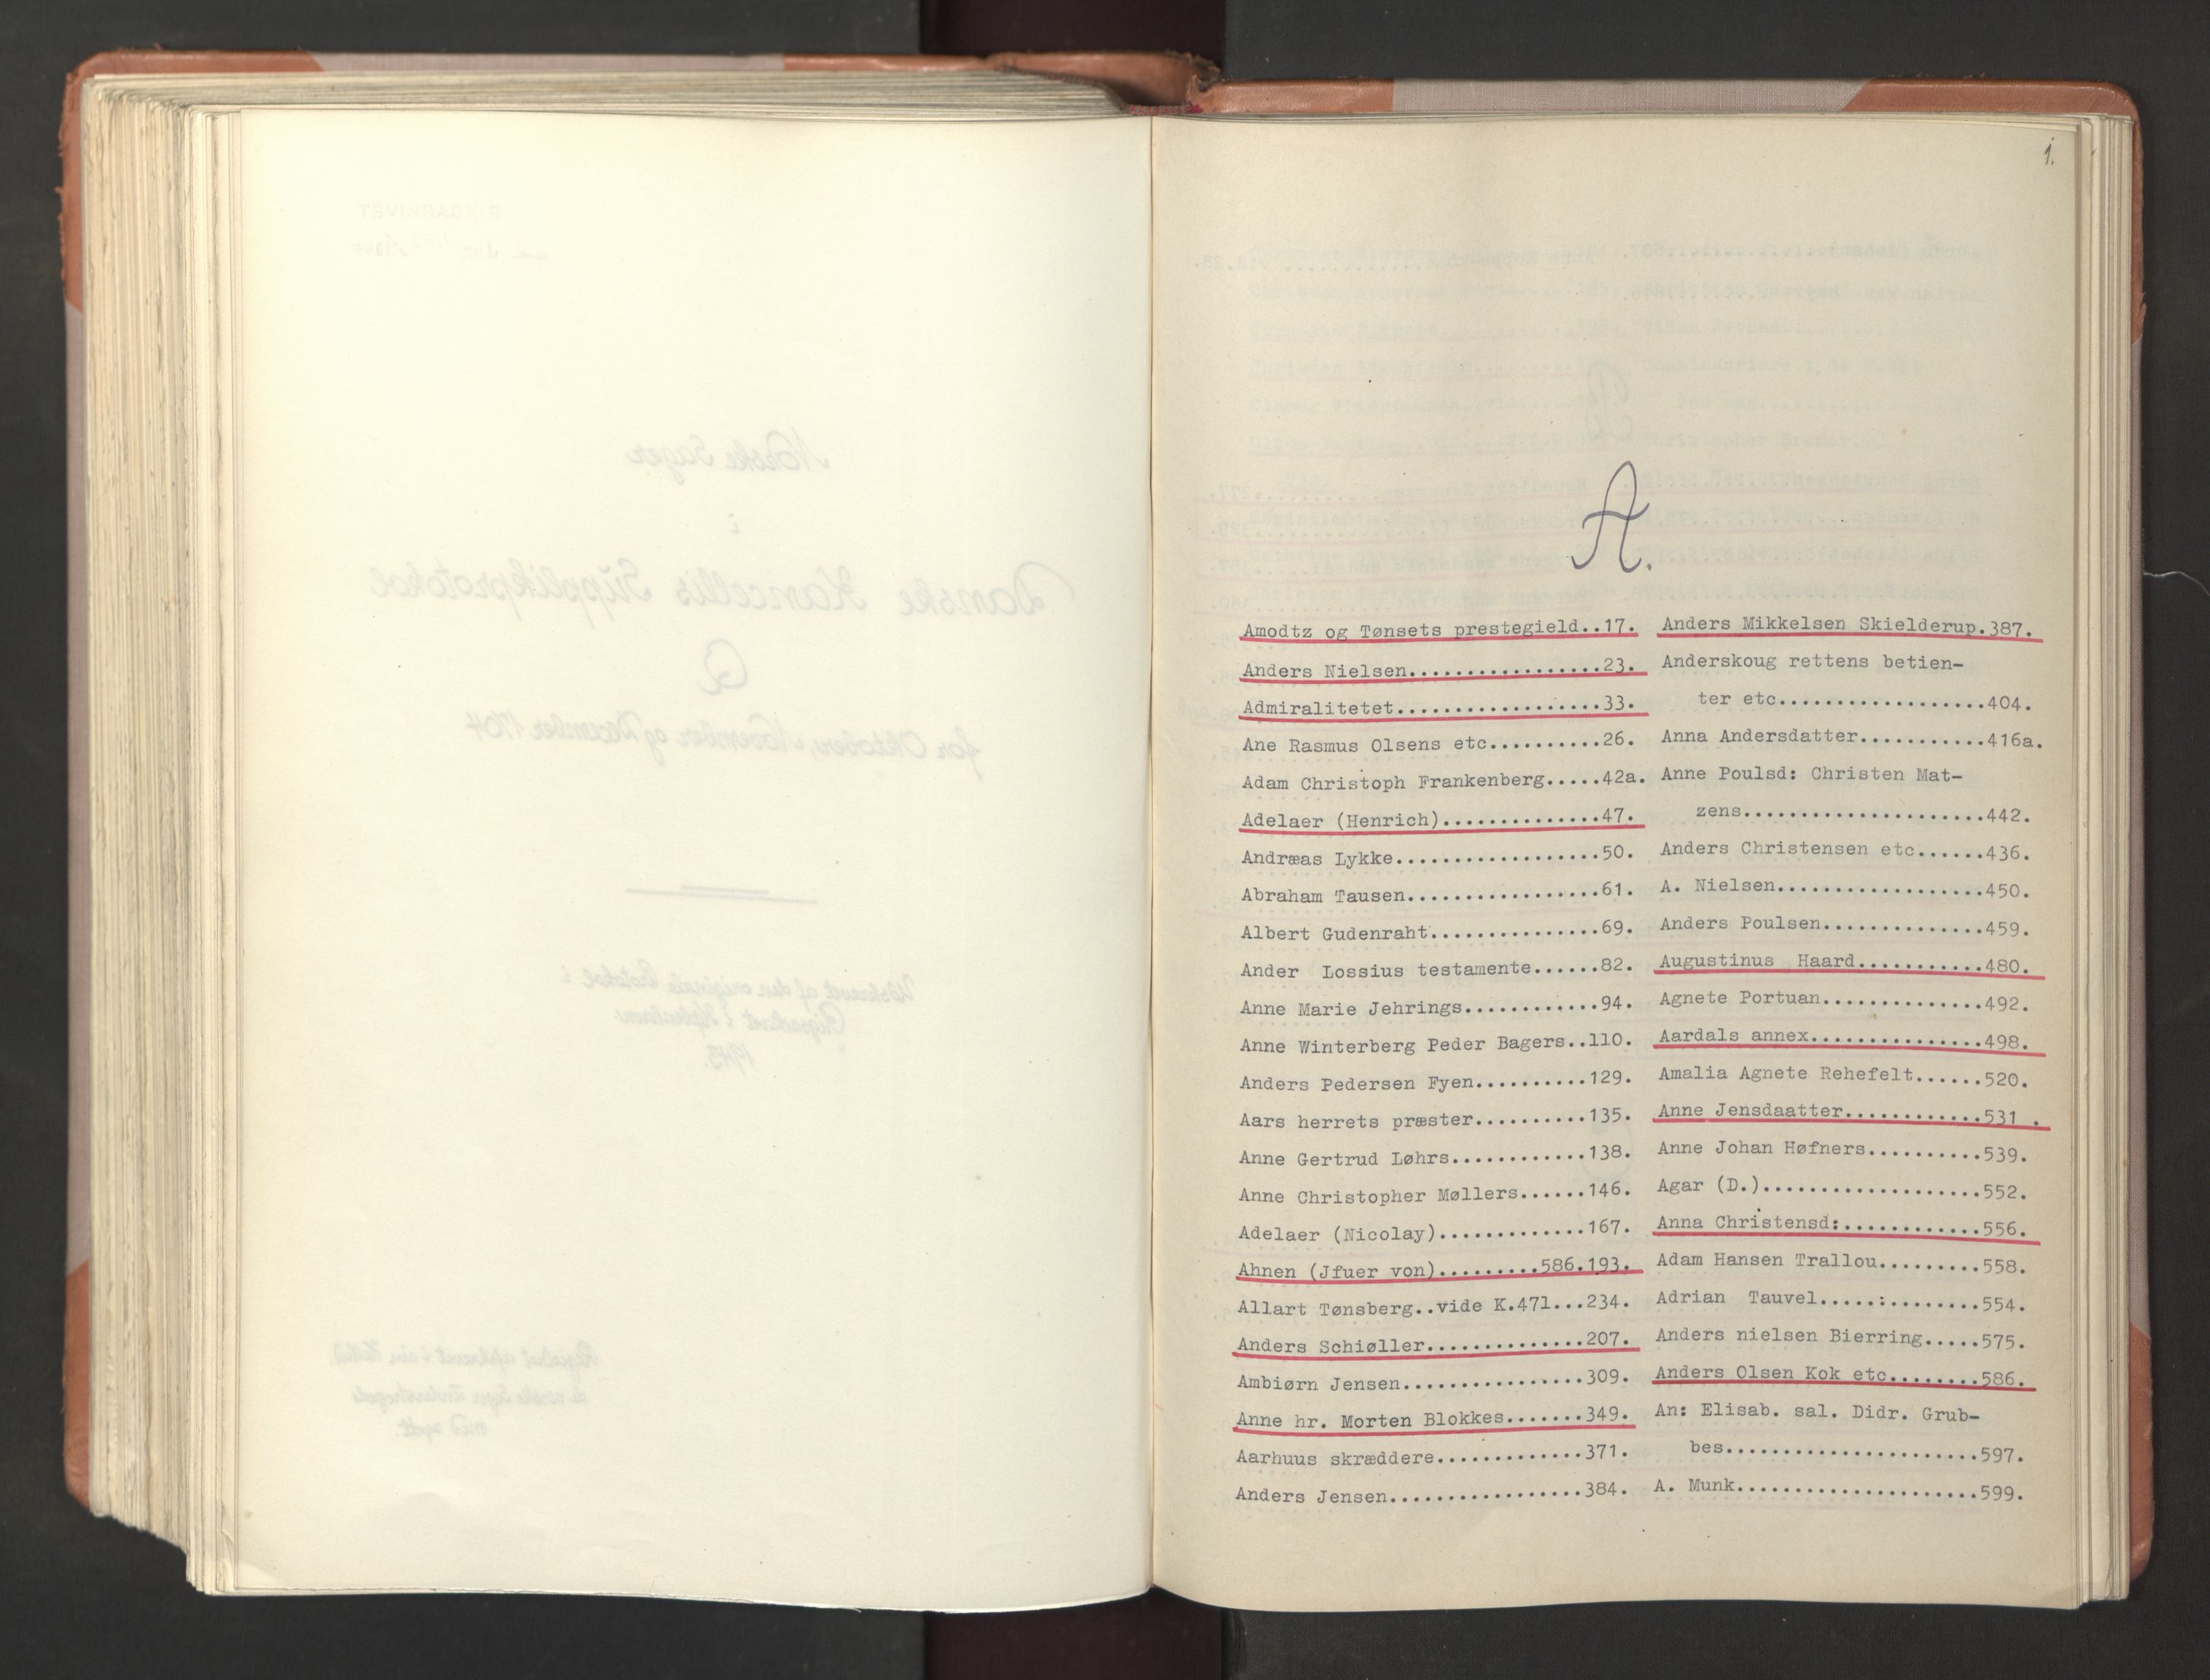 1.
A.
Amodtz og Tønsets prestegield..17.
Anders Nielsen.................23.
Admiralitetet..................33.
Ane Rasmus Olsens etc..........26.
Adam Christoph Frankenberg.....42a.
Adelaer (Henrich)..............47.
Andræas Lykke..................50.
Abraham Tausen.................61.
Albert Gudenraht...............69.
Ander Lossius testamente......82.
Anne Marie Jehrings............94.
Anne Winterberg Peder Bagers..110.
Anders Pedersen Fyen..........129.
Aars herrets præster..........135.
Anne Gertrud Løhrs............138.
Anne Christopher Møllers......146.
Adelaer (Nicolay).............167.
Ahnen (Jfuer von).........586.193.
Allart Tønsberg..vide K.471...234.
Anders Schiøller..............207.
Ambiørn Jensen................309.
Anne hr. Morten Blokkes.......349.
Aarhuus skræddere.............371.
Anders Jensen.................384.
Anders Mikkelsen Skielderup.387.
Anderskoug rettens betien-
ter etc...................404.
Anna Andersdatter...........416a.
Anne Poulsd: Christen Mat-
zens......................442.
Anders Christensen etc......436.
A. Nielsen..................450.
Anders Poulsen..............459.
Augustinus Haard...........480.
Agnete Portuan..............492.
Aardals annex...............498.
Amalia Agnete Rehefelt......520.
Anne Jensdaatter............531 .
Anne Johan Høfners..........539.
Agar (D.)...................552.
Anna Christensd:............556.
Adam Hansen Trallou.........558.
Adrian Tauvel.....:........554.
Anders nielsen Bierring.....575.
Anders Olsen Kok etc........586.
An: Elisab. sal. Didr. Grub-
bes.......................597.
A. Munk.....................599.